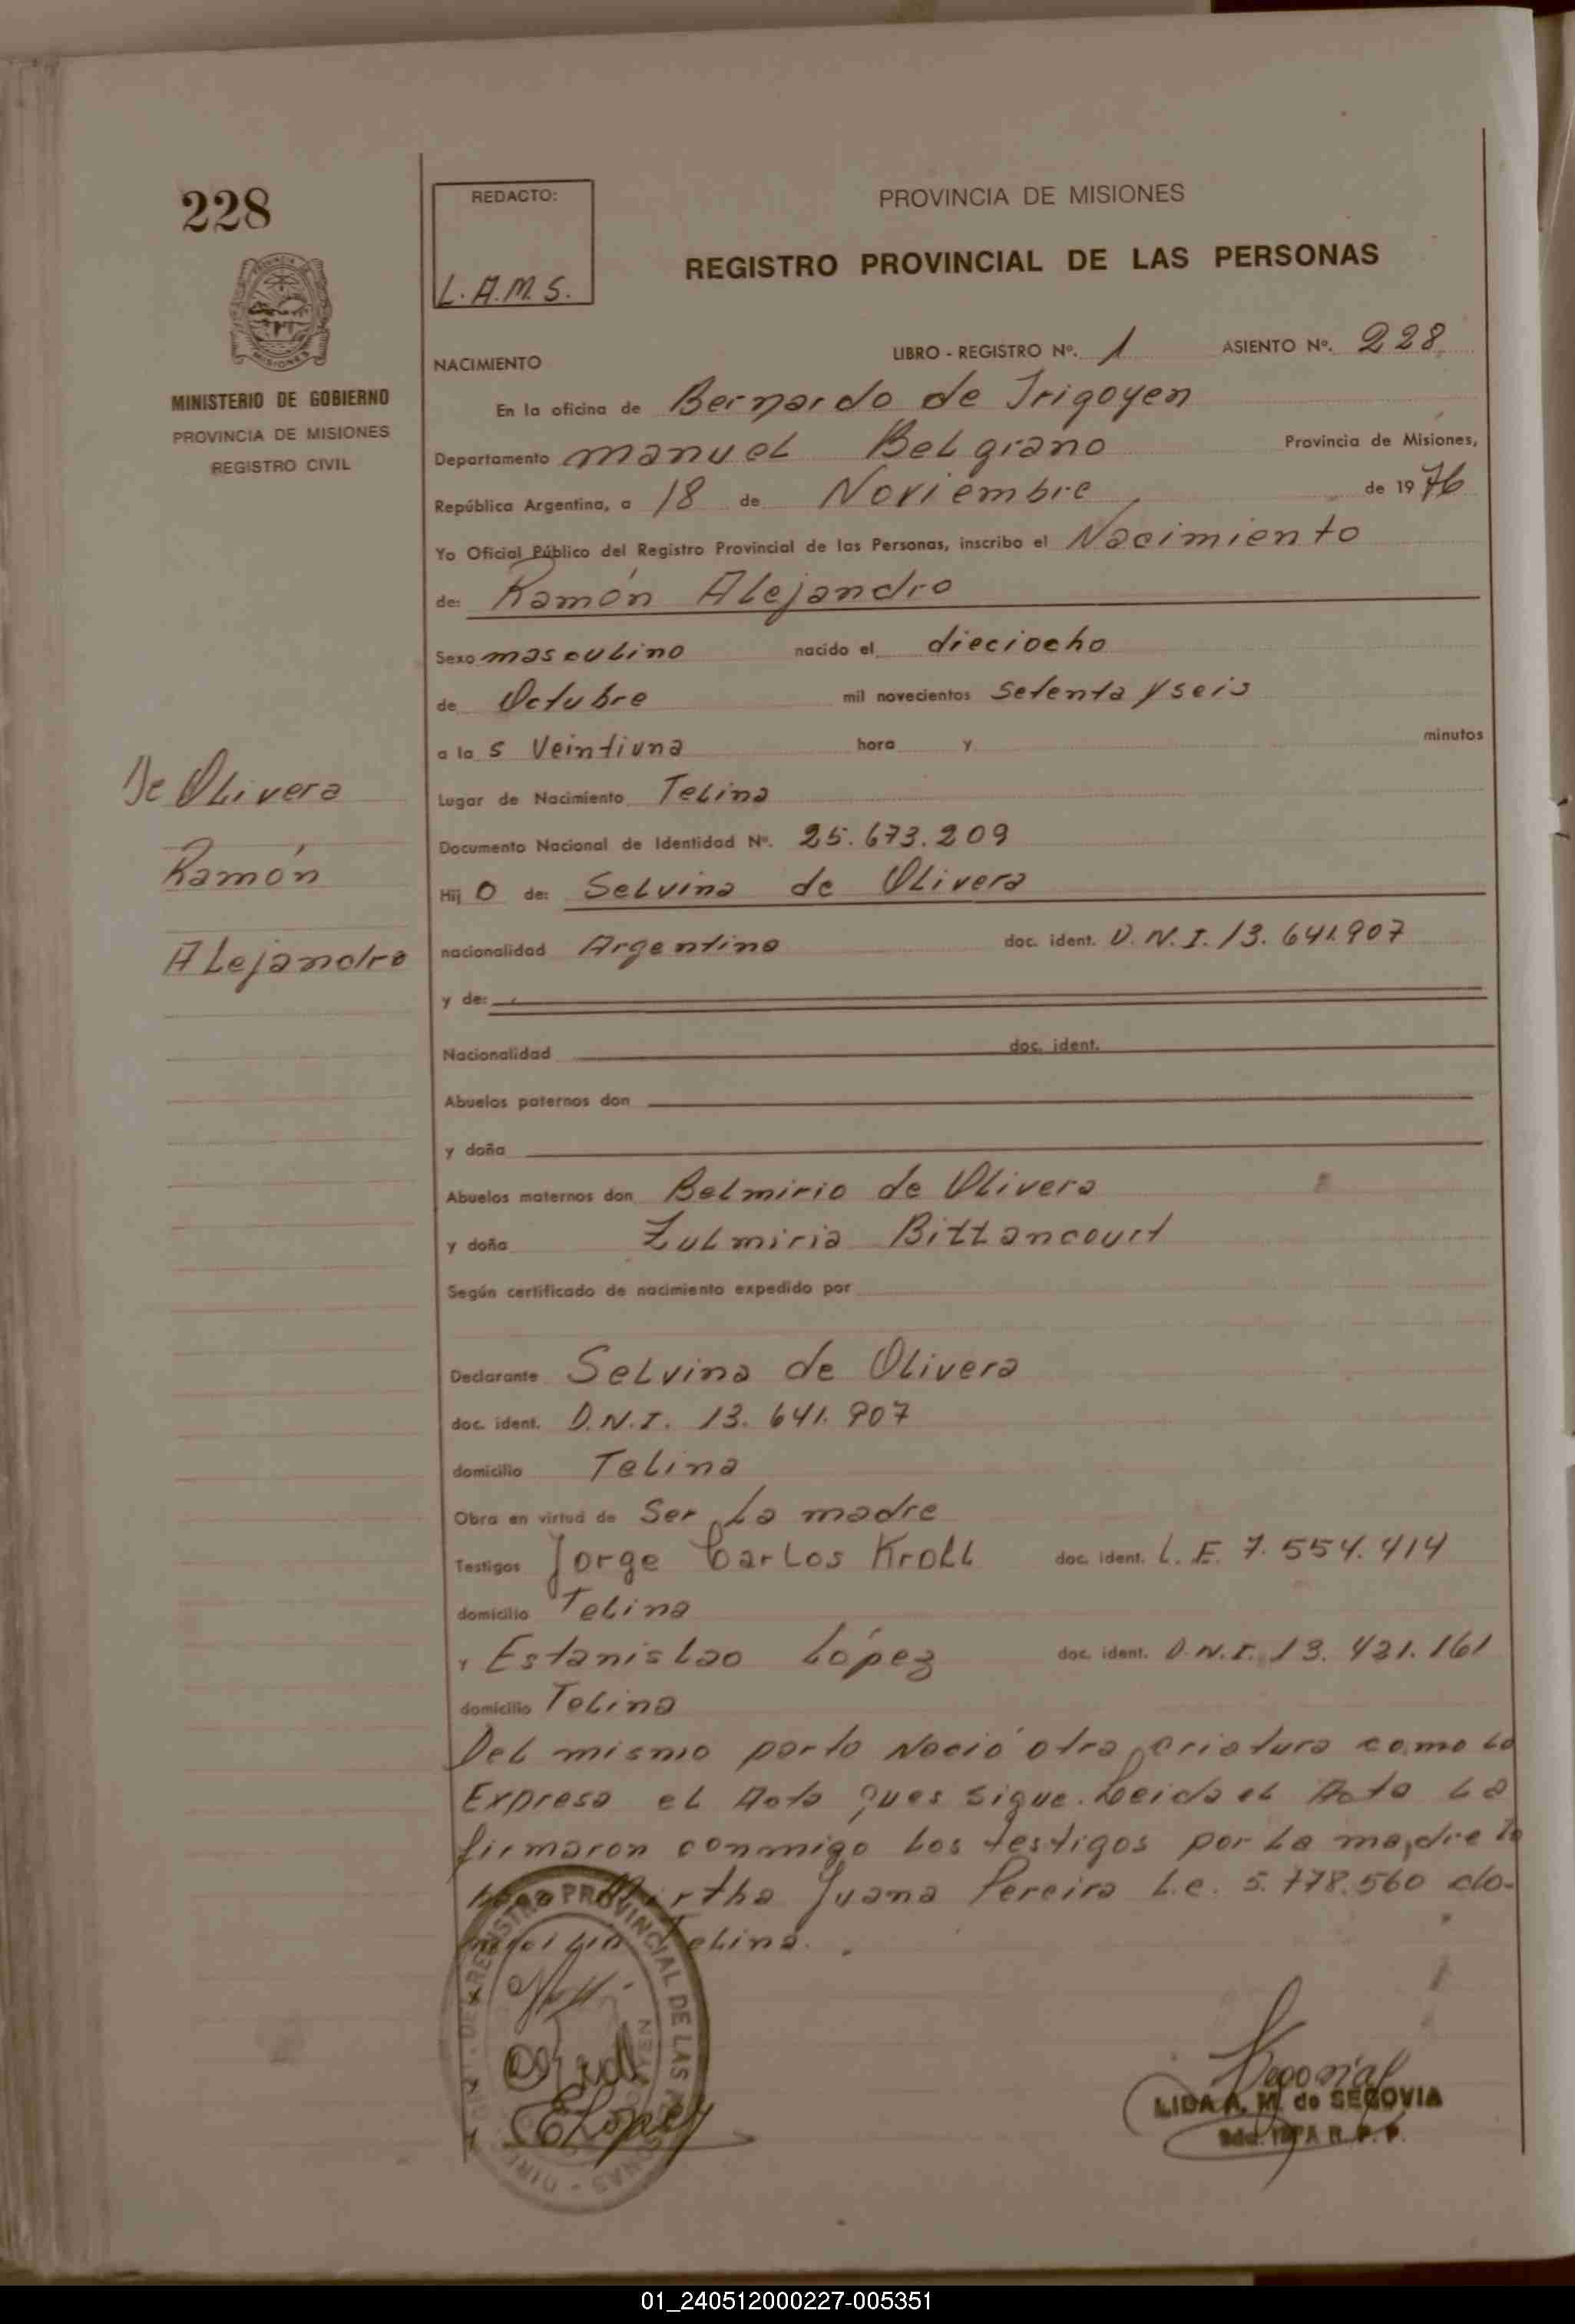 228
REDACTO:
L.A.M.S.
PROVINCIA DE MISIONES
REGISTRO PROVINCIAL DE LAS PERSONAS
MINISTERIO DE GOBIERNO
PROVINCIA DE MISIONES
REGISTRO CIVIL
NACIMIENTO LIBRO - REGISTRO Nº. 1 ASIENTO Nº. 228
En la oficina de Bernardo de Irigoyen
Departamento Manuel Belgrano Provincia de Misiones,
República Argentina, a 18 de Noviembre de 1976
Yo Oficial Público del Registro Provincial de las Personas, inscribo el Nacimiento
de: Ramón Alejandro
Sexo masculino nacido el dieciocho
de Octubre mil novecientos setenta y seis
a las Veintiuna hora y minutos
De Olivera
Ramón
Alejandro
Lugar de Nacimiento Telina
Documento Nacional de Identidad Nº. 25.673.209
Hijo de: Selvina de Olivera
nacionalidad Argentina doc. ident. D.N.I. 13.641.907
y de:
Nacionalidad doc. ident.
Abuelos paternos don
y doña
Abuelos maternos don Belmirio de Olivera
y doña Zulmiria Bittancourt
Según certificado de nacimiento expedido por
Declarante Selvina de Olivera
doc. ident. D.N.I. 13.641.907
domicilio Telina
Obra en virtud de Ser La madre
Testigos Jorge Carlos Kroll doc. ident. L.E. 7.554.414
domicilio Telina
y Estanislao López doc. ident. D.N.I. 13.421.161
domicilio Telina
Del mismo parto Nació otra criatura como lo
Expresa el Acta ques sigue. Leida el Acta la
firmaron conmigo los testigos por la madre lo
Mirtha Juana Pereira L.e. 5.778.560 do-
micilia Telina.
REGISTRO PROVINCIAL DE LAS
ELopez
LIDA A. M. de SEGOVIA
R. P. P.
01_240512000227-005351